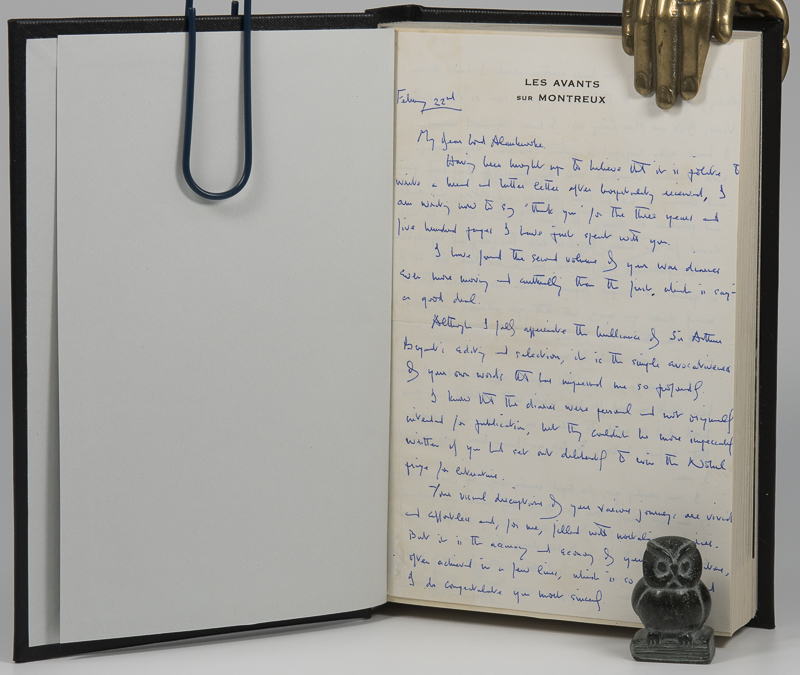 LES AVANTS
SUR MONTREUX
February 22nd
My dear Lord Alanbrooke.
Having been brought up to believe that it is polite to
write a bread and butter letter after hospitality received, I
am writing now to say "thank you" for the three years and
five hundred pages I have just spent with you.
I have found the second volume of your war diaries
even more moving and enthralling than the first, which is saying
a good deal.
Although I fully appreciate the brilliance of Sir Arthur
Bryant's editing and selection, it is the simple evocativeness
of your own words that has impressed me so profoundly.
I know that the diaries were personal and not originally
intended for publication, but they couldn't be more impeccably
written if you had set out deliberately to win the Nobel
prize for literature.
Your visual descriptions of your various journeys are vivid
and effortless and, for me, filled with
But it is the accuracy and economy of your
often achieved in a few lines, which is so
I do congratulate you most sincerely